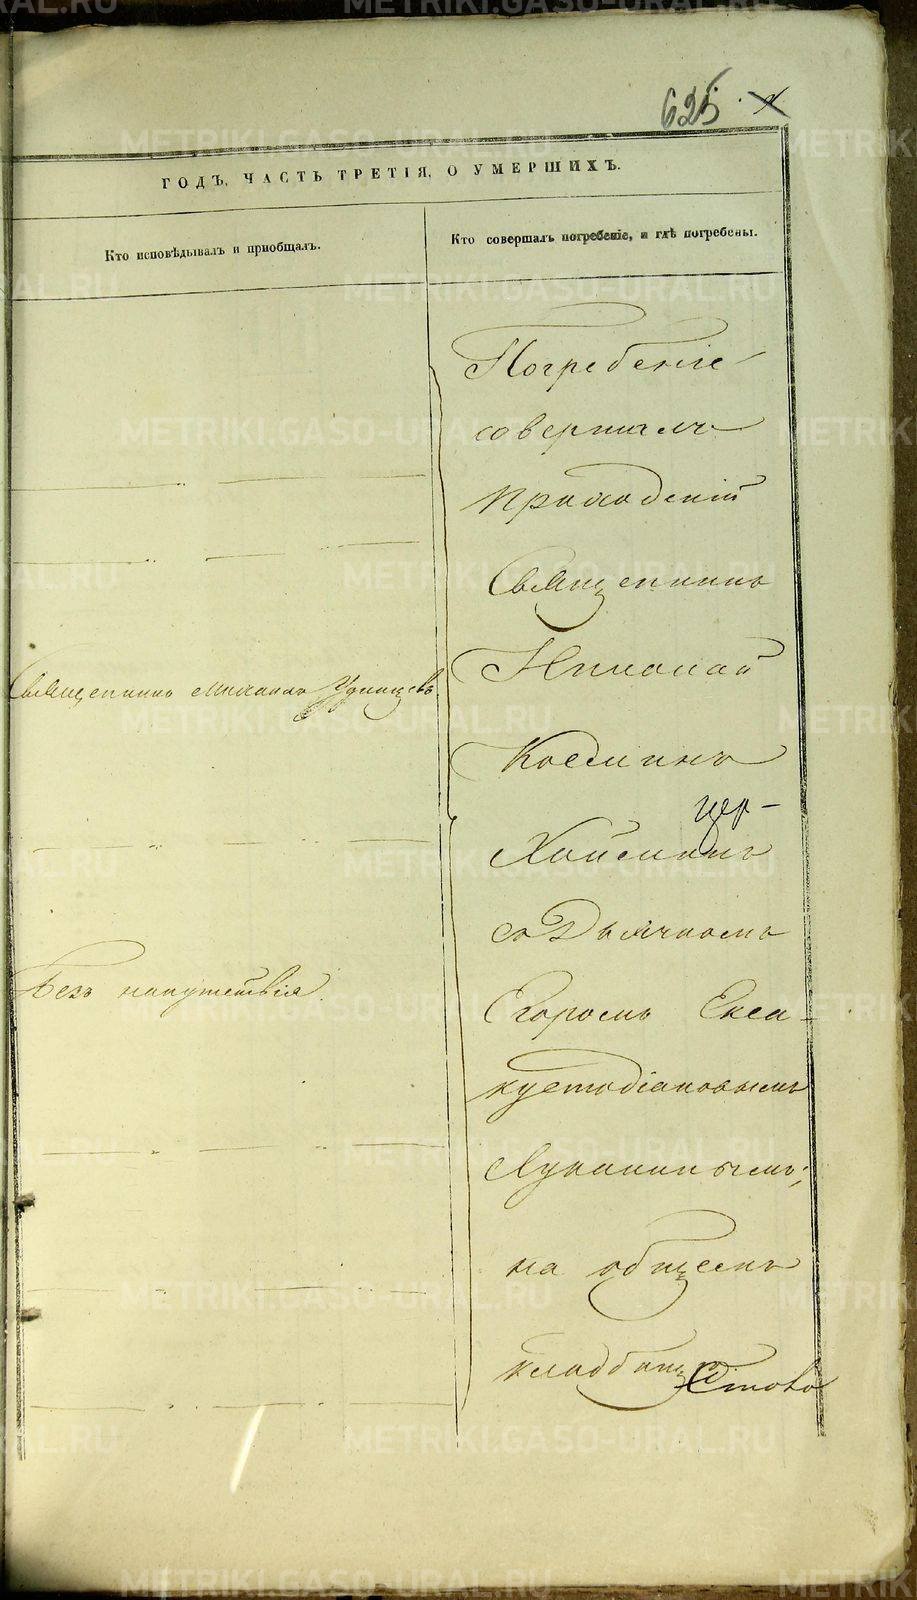 625
ГОДЪ, ЧАСТЬ ТРЕТІЯ, О УМЕРШИХЪ.
Кто исповѣдывалъ и пріобщалъ.
Кто совершалъ погребеніе, и гдѣ погребены.
Погребеніе
совершалъ
приходскій
Священникъ
Николай
Космин
цер-
съ Дьячкомъ
Егоромъ Екса-
кустодіановымъ
Лукинымъ;
на общемъ
кладбищѣ
Священникъ Михаилъ Удинцевъ.
Безъ напутствія.
METRIKI.GASO-URAL.RU